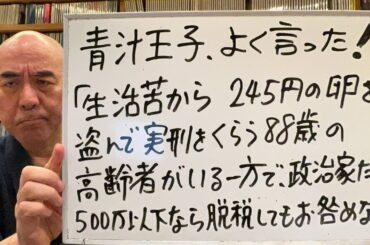 青汁王子、よく言った!
「生活苦から 245円の卵を
盗んで実刑をくらう88歳の
高齢者がいる一方で、政治家た
500万以下なら脱税してもお咎めな